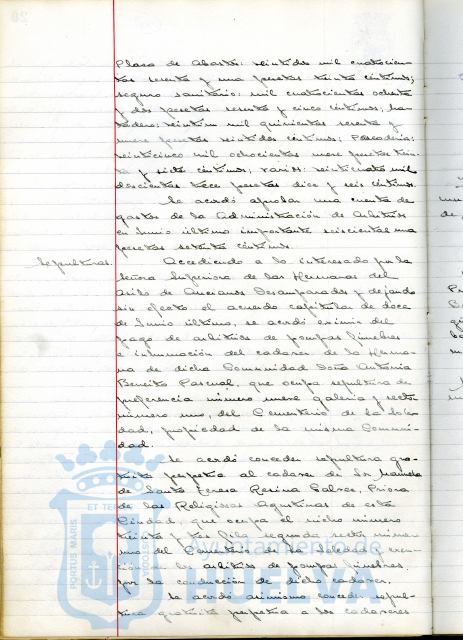 Plaza de Abastos: veintidos mil cuatrocien-
tas sesenta y una pesetas treinta céntimos;
seguro sanitario: mil cuatrocientas ochenta
y dos pesetas sesenta y cinco céntimos; ma-
tadero: veintiun mil quinientas sesenta y
nueve pesetas veintidos céntimos; Pescadería:
veinticinco mil ochocientas once pesetas trein-
ta y siete céntimos; varios: veinticuatro mil
doscientas trece pesetas diez y seis céntimos.
Se acordó aprobar una cuenta de
gastos de la Administración de Arbitrios
en Junio último importante seiscientas una
pesetas setenta céntimos.
Sepulturas.
Accediendo a lo interesado por la
Señora Superiora de las Hermanas del
Asilo de Ancianos Desamparados y dejando
sin efecto el acuerdo capitular de doce
de Junio último, se acordó eximir del
pago de arbitrios de pompas fúnebres
e inhumación del cadaver de la Herma-
na de dicha Comunidad Doña Antonia
Beneito Pascual, que ocupa sepultura de
preferencia número nueve galería y recto
número uno, del Cementerio de la Sole-
dad, propiedad de la misma Comuni-
dad.
Se acordó conceder sepultura gra-
tuita perpetua al cadaver de Sor Manuela
de Santa Teresa Resina Galvez, Priora
de las Religiosas Agustinas de esta
Ciudad, que ocupa el nicho número
treinta y tres, fila segunda, recto número
uno del Cementerio de la Soledad y exen-
ción de los arbitrios de pompas fúnebres
por la conducción de dicho cadaver.
Se acordó asimismo conceder sepul-
tura gratuita perpetua a los cadaveres
ET TERRA
PORTUS MARIS
CUSTODIA
Ayuntamiento de
HUELVA